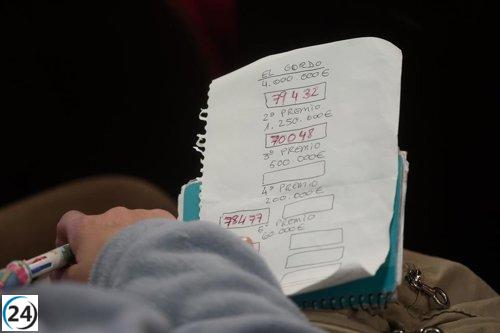 EL GORDO
4.000.000€
79432
2º PREMIO
1.250.000€
70048
3º PREMIO
500.000€
4º PREMIO
200.000€
78477
5º PREMIO
60.000€
24